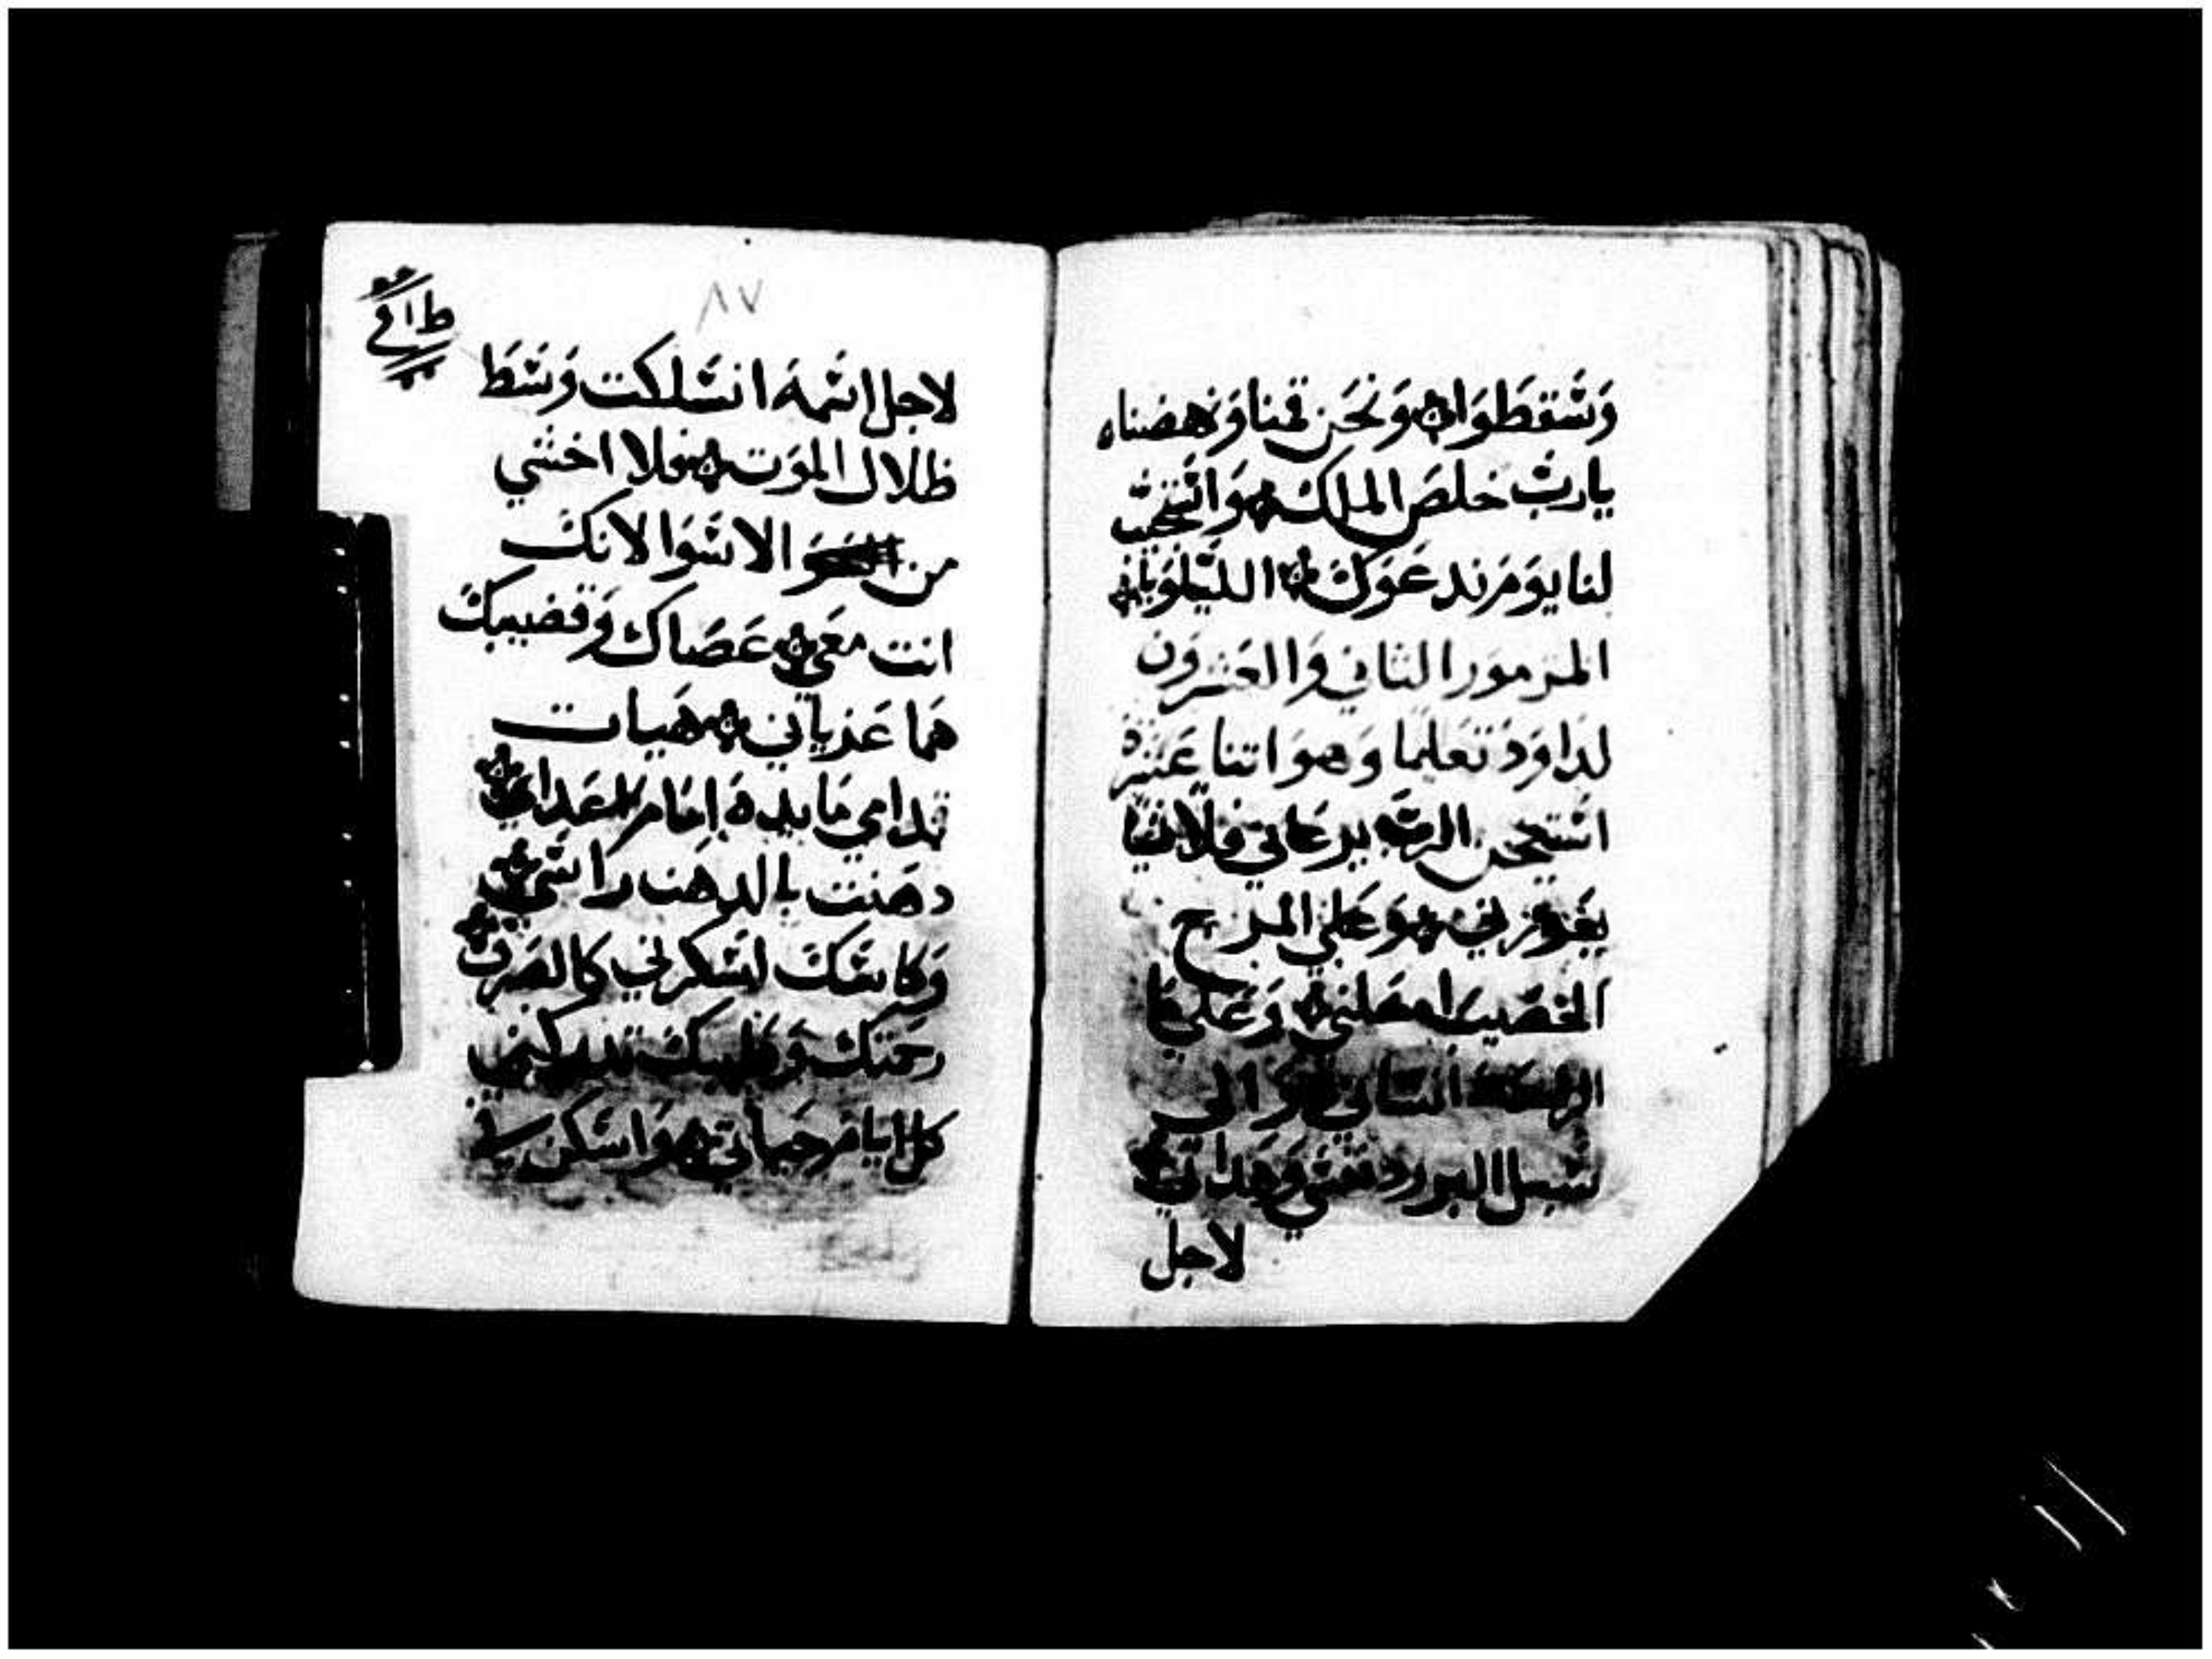 وسقطوا ونحن قمنا ونهضنا
يارب خلص الملك واستجب
لنا يوم ندعوك الليلويا
المزمور الثاني والعشرون
لداود تعلما وهو اتنا عشرة
الرب يرعاني فلا شيا
يعوزني وعلي المرج
الخصيب احلني وعلي ما
الراحة اسقاني والي
سبل البر رد نفسي وهداني
لاجل
٨٧
لاجل اسمه انسلكت وسط
ظلال الموت فلا اخشي
من الاسوا لانك
انت معي عصاك وقضيبك
هما عزياني هيات
قدامي مايدة امام اعداي
دهنت بالدهن راسي
وكاسك اسكرني كالصرف
رحمتك تدركني
كل ايام حياتي واسكن في